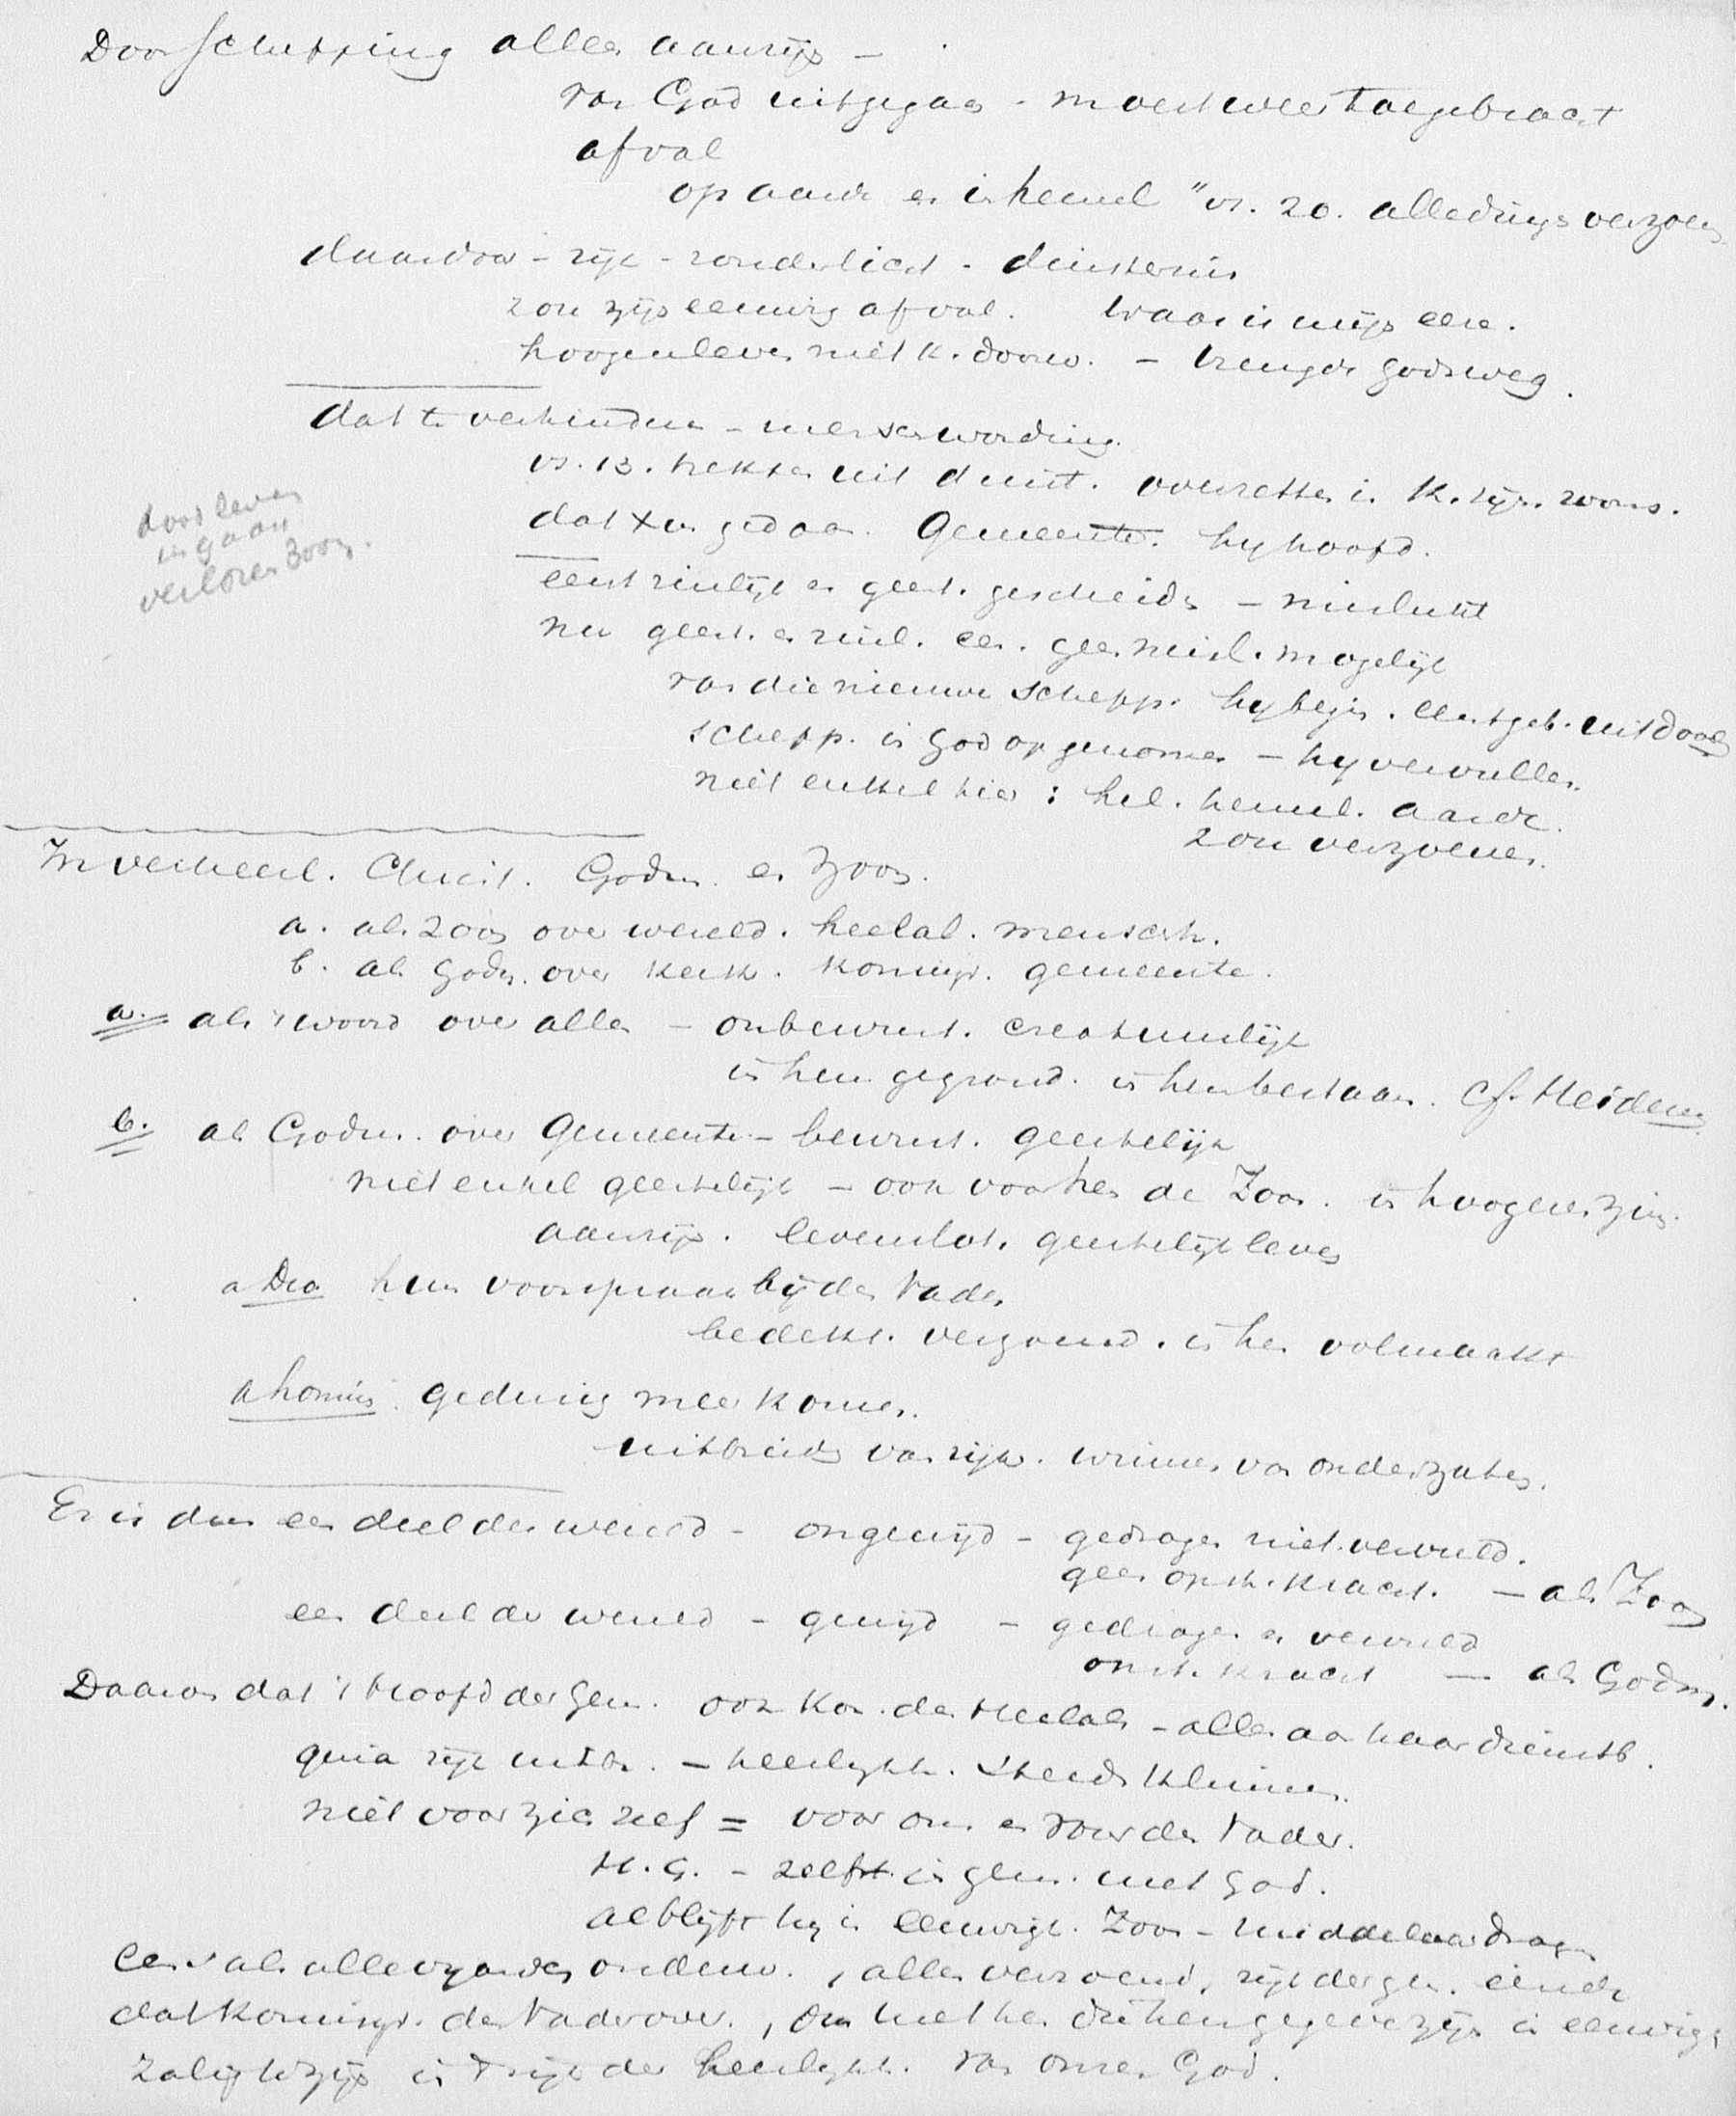 Door schepping alles aanzijn –
van God uitgegaan – moest weer toegebracht
afval
op aarde en in hemel "vs. 20. alle dings verzoen
daardoor – rijk – zonder licht – duisternis
zou zijn eeuwig afval. waar is mijn eere.
hooger leven niet k. doorw. – brengen Gods weg.
dat te verhinderen – menschwording.
vs. 13. trekken uit duist. overzetten in K. rijk. zoons.
dat Xus gedaan. Gemeente. hij hoofd.
door leven
ingaan
verloren Zoon.
eerst zinlijk en geest. gescheiden – mislukt
nu geest. en zinl. een. geen misl. mogelijk
van die nieuwe schepp. hij begin. eerstgeb. uit dooden
schepp. in God opgenomen – hij vervullen.
niet enkel hier : hel. hemel. aarde.
zou verzoenen.
In verheerl. Christ. Godm. en Zoon.
a. als Zoon over wereld. heelal. mensch.
b. als Godm. over kerk. koningr. gemeente.
a. als 't woord over alles – onbewust. creatuurlijk
in hem gegrond. in hem bestaan. Cf. Heidens
b. als Godm. over Gemeente – bewust. geestelijk
niet enkel geestelijk – ook voor hen de Zoon. in hoogeren zin.
aanzijn. levenslot. geestelijk leven
a Deo hun voorspraak bij den Vader
bedekt. verzoend. in hem volmaakt
a homin. gedurig meer komen.
uitbreiden van rijk. winnen van onderzaten.
Er is dus een deel der wereld – ongewijd – gedragen niet vervuld.
geen opst. kracht. – als Zoon
een deel der wereld – gewijd – gedragen en vervuld
opst. kracht — als Godm.
Daarom dat 't Hoofd der Gem. ook Kon. des Heelals – alles aan haar dienstb.
quia rijk uitbr. – heerlijkh. steeds klimmen.
niet voor zich zelf = voor ons en voor den Vader.
H. G. – zelfst. in gem. met God.
al blijft hij in eeuwigh. Zoon – middelaar dragen
Eerst als alle vijanden onderw., alles verzoend, rijk der gen. einde
dat koningr. den Vader over., om met hen die hem gegeven zijn in eeuwige
zaligh. te zijn in 't rijk der heerlijkh. van onzen God.